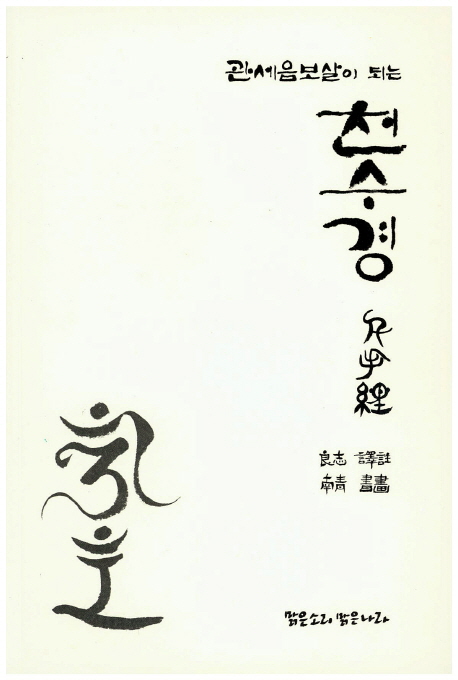 관세음보살이 되는
천수경
千手經
良志 譯註
南靑 書畫
맑은소리 맑은나라